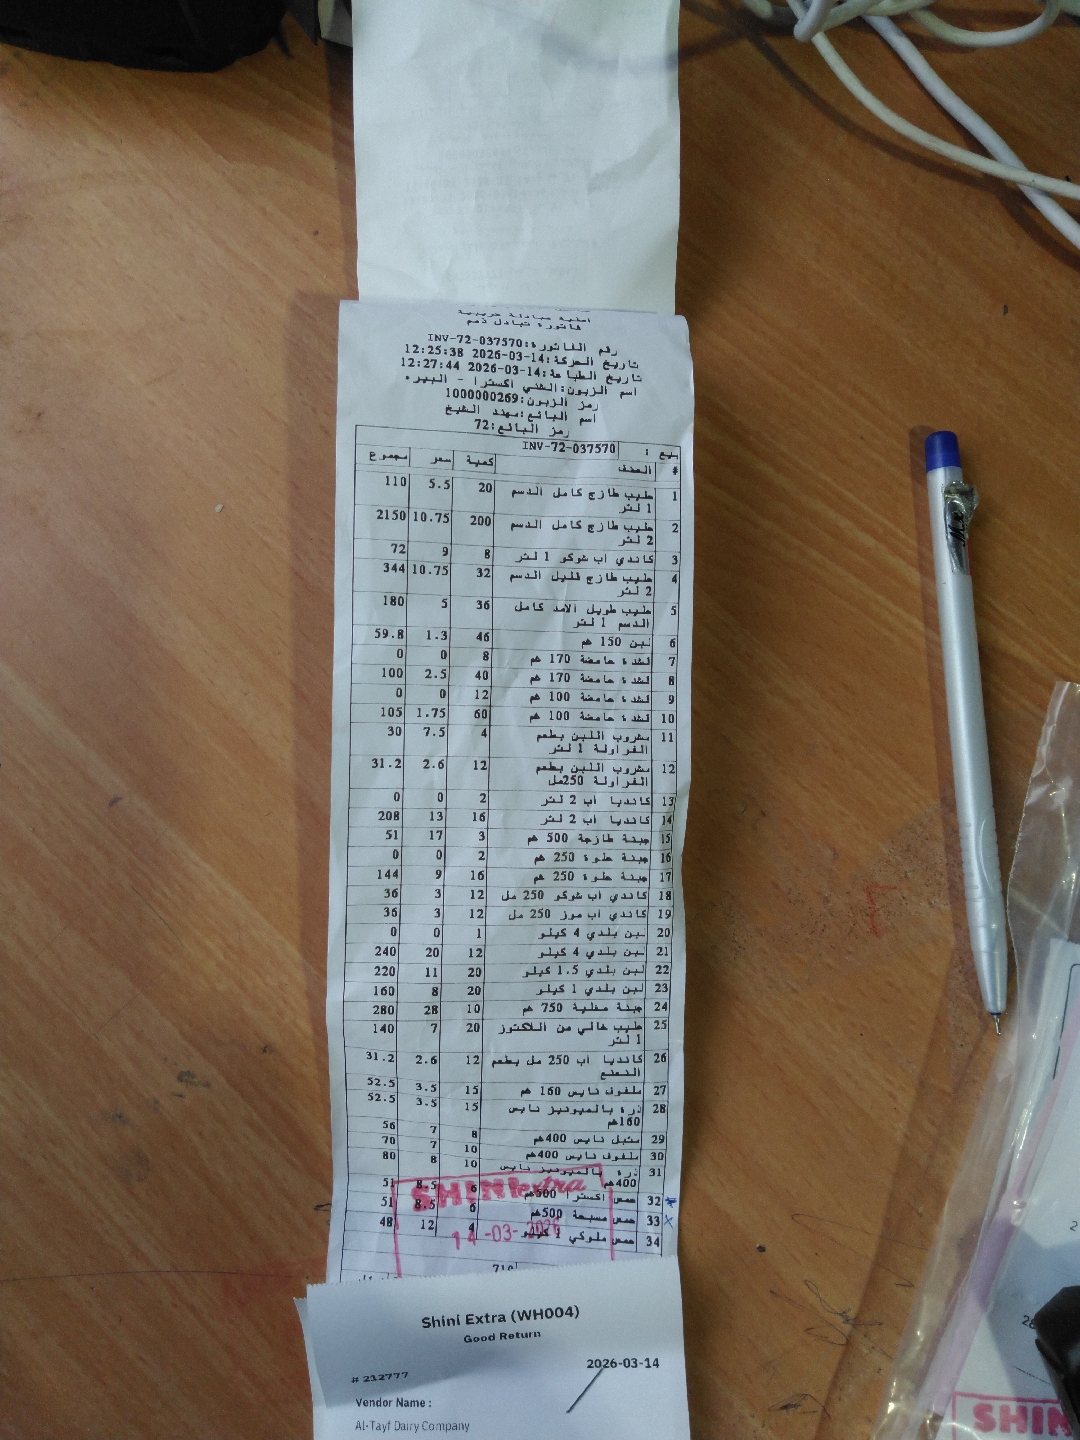 فاتورة تبادل ذمم
رقم الفاتورة:INV-72-037570
تاريخ الحركة:2026-03-14 12:25:38
تاريخ الطباعة:2026-03-14 12:27:44
اسم الزبون:الشني اكسترا - البيره
رمز الزبون:1000000269
اسم البائع:مهند الشيخ
رمز البائع:72
بيع : INV-72-037570
# الصنف كمية سعر مجموع
1 حليب طازج كامل الدسم 20 5.5 110
1 لتر
2 حليب طازج كامل الدسم 200 10.75 2150
2 لتر
3 كاندي اب شوكو 1 لتر 8 9 72
4 حليب طازج قليل الدسم 32 10.75 344
2 لتر
5 حليب طويل الامد كامل 36 5 180
الدسم 1 لتر
6 لبن 150 غم 46 1.3 59.8
7 قشدة حامضة 170 غم 8 0 0
8 قشدة حامضة 170 غم 40 2.5 100
9 قشدة حامضة 100 غم 12 0 0
10 قشدة حامضة 100 غم 60 1.75 105
11 مشروب اللبن بطعم 4 7.5 30
الفراولة 1 لتر
12 مشروب اللبن بطعم 12 2.6 31.2
الفراولة 250مل
13 كانديا اب 2 لتر 2 0 0
14 كانديا اب 2 لتر 16 13 208
15 جبنة طازجة 500 غم 3 17 51
16 جبنة حلوة 250 غم 2 0 0
17 جبنة حلوة 250 غم 16 9 144
18 كاندي اب شوكو 250 مل 12 3 36
19 كاندي اب موز 250 مل 12 3 36
20 لبن بلدي 4 كيلو 1 0 0
21 لبن بلدي 4 كيلو 12 20 240
22 لبن بلدي 1.5 كيلو 20 11 220
23 لبن بلدي 1 كيلو 20 8 160
24 جبنة مغلية 750 غم 10 28 280
25 حليب خالي من اللاكتوز 20 7 140
1 لتر
26 كانديا اب 250 مل بطعم 12 2.6 31.2
النعنع
27 ملفوف نايس 160 غم 15 3.5 52.5
28 ذرة بالميونيز نايس 15 3.5 52.5
160غم
29 متبل نايس 400غم 8 7 56
30 ملفوف نايس 400غم 10 7 70
31 ذرة بالميونيز نايس 10 8 80
400غم
32 حمص اكسترا 500غم 6 8.5 51
33 حمص مسبحة 500غم 6 8.5 51
34 حمص ملوكي 1 كيلو 4 12 48
SHINI extra
14-03-2026
710
Shini Extra (WH004)
Good Return
2026-03-14
# 212777
Vendor Name :
Al-Tayf Dairy Company
SHIN